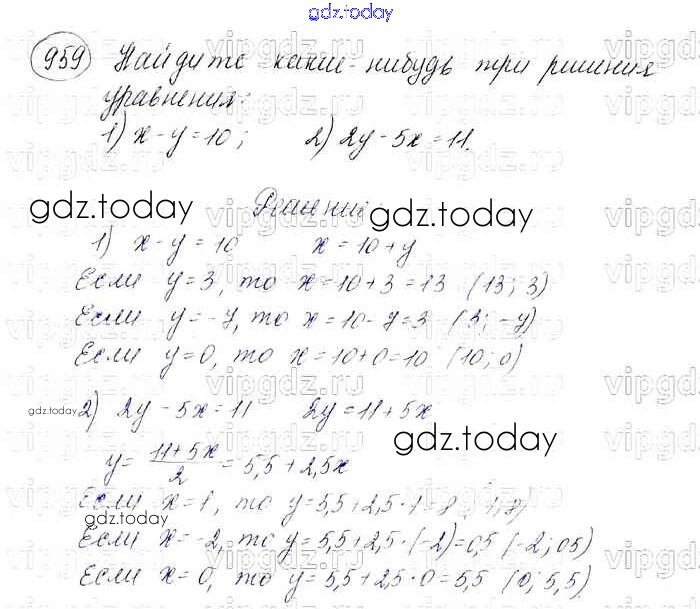 gdz.today
959 Найдите какие-нибудь три решения
уравнения:
1) x - y = 10; 2) 2y - 5x = 11.
gdz.today Решение: gdz.today
1) x - y = 10 x = 10 + y
Если y = 3, то x = 10 + 3 = 13 (13; 3)
Если y = -7, то x = 10 - 7 = 3 (3; -7)
Если y = 0, то x = 10 + 0 = 10 (10; 0)
gdz.today 2) 2y - 5x = 11 2y = 11 + 5x
gdz.today
y = (11 + 5x)/2 = 5,5 + 2,5x
Если x = 1, то y = 5,5 + 2,5 · 1 = 8 (1; 8)
gdz.today
Если x = -2, то y = 5,5 + 2,5 · (-2) = 0,5 (-2; 0,5)
Если x = 0, то y = 5,5 + 2,5 · 0 = 5,5 (0; 5,5).
vipgdz.ru